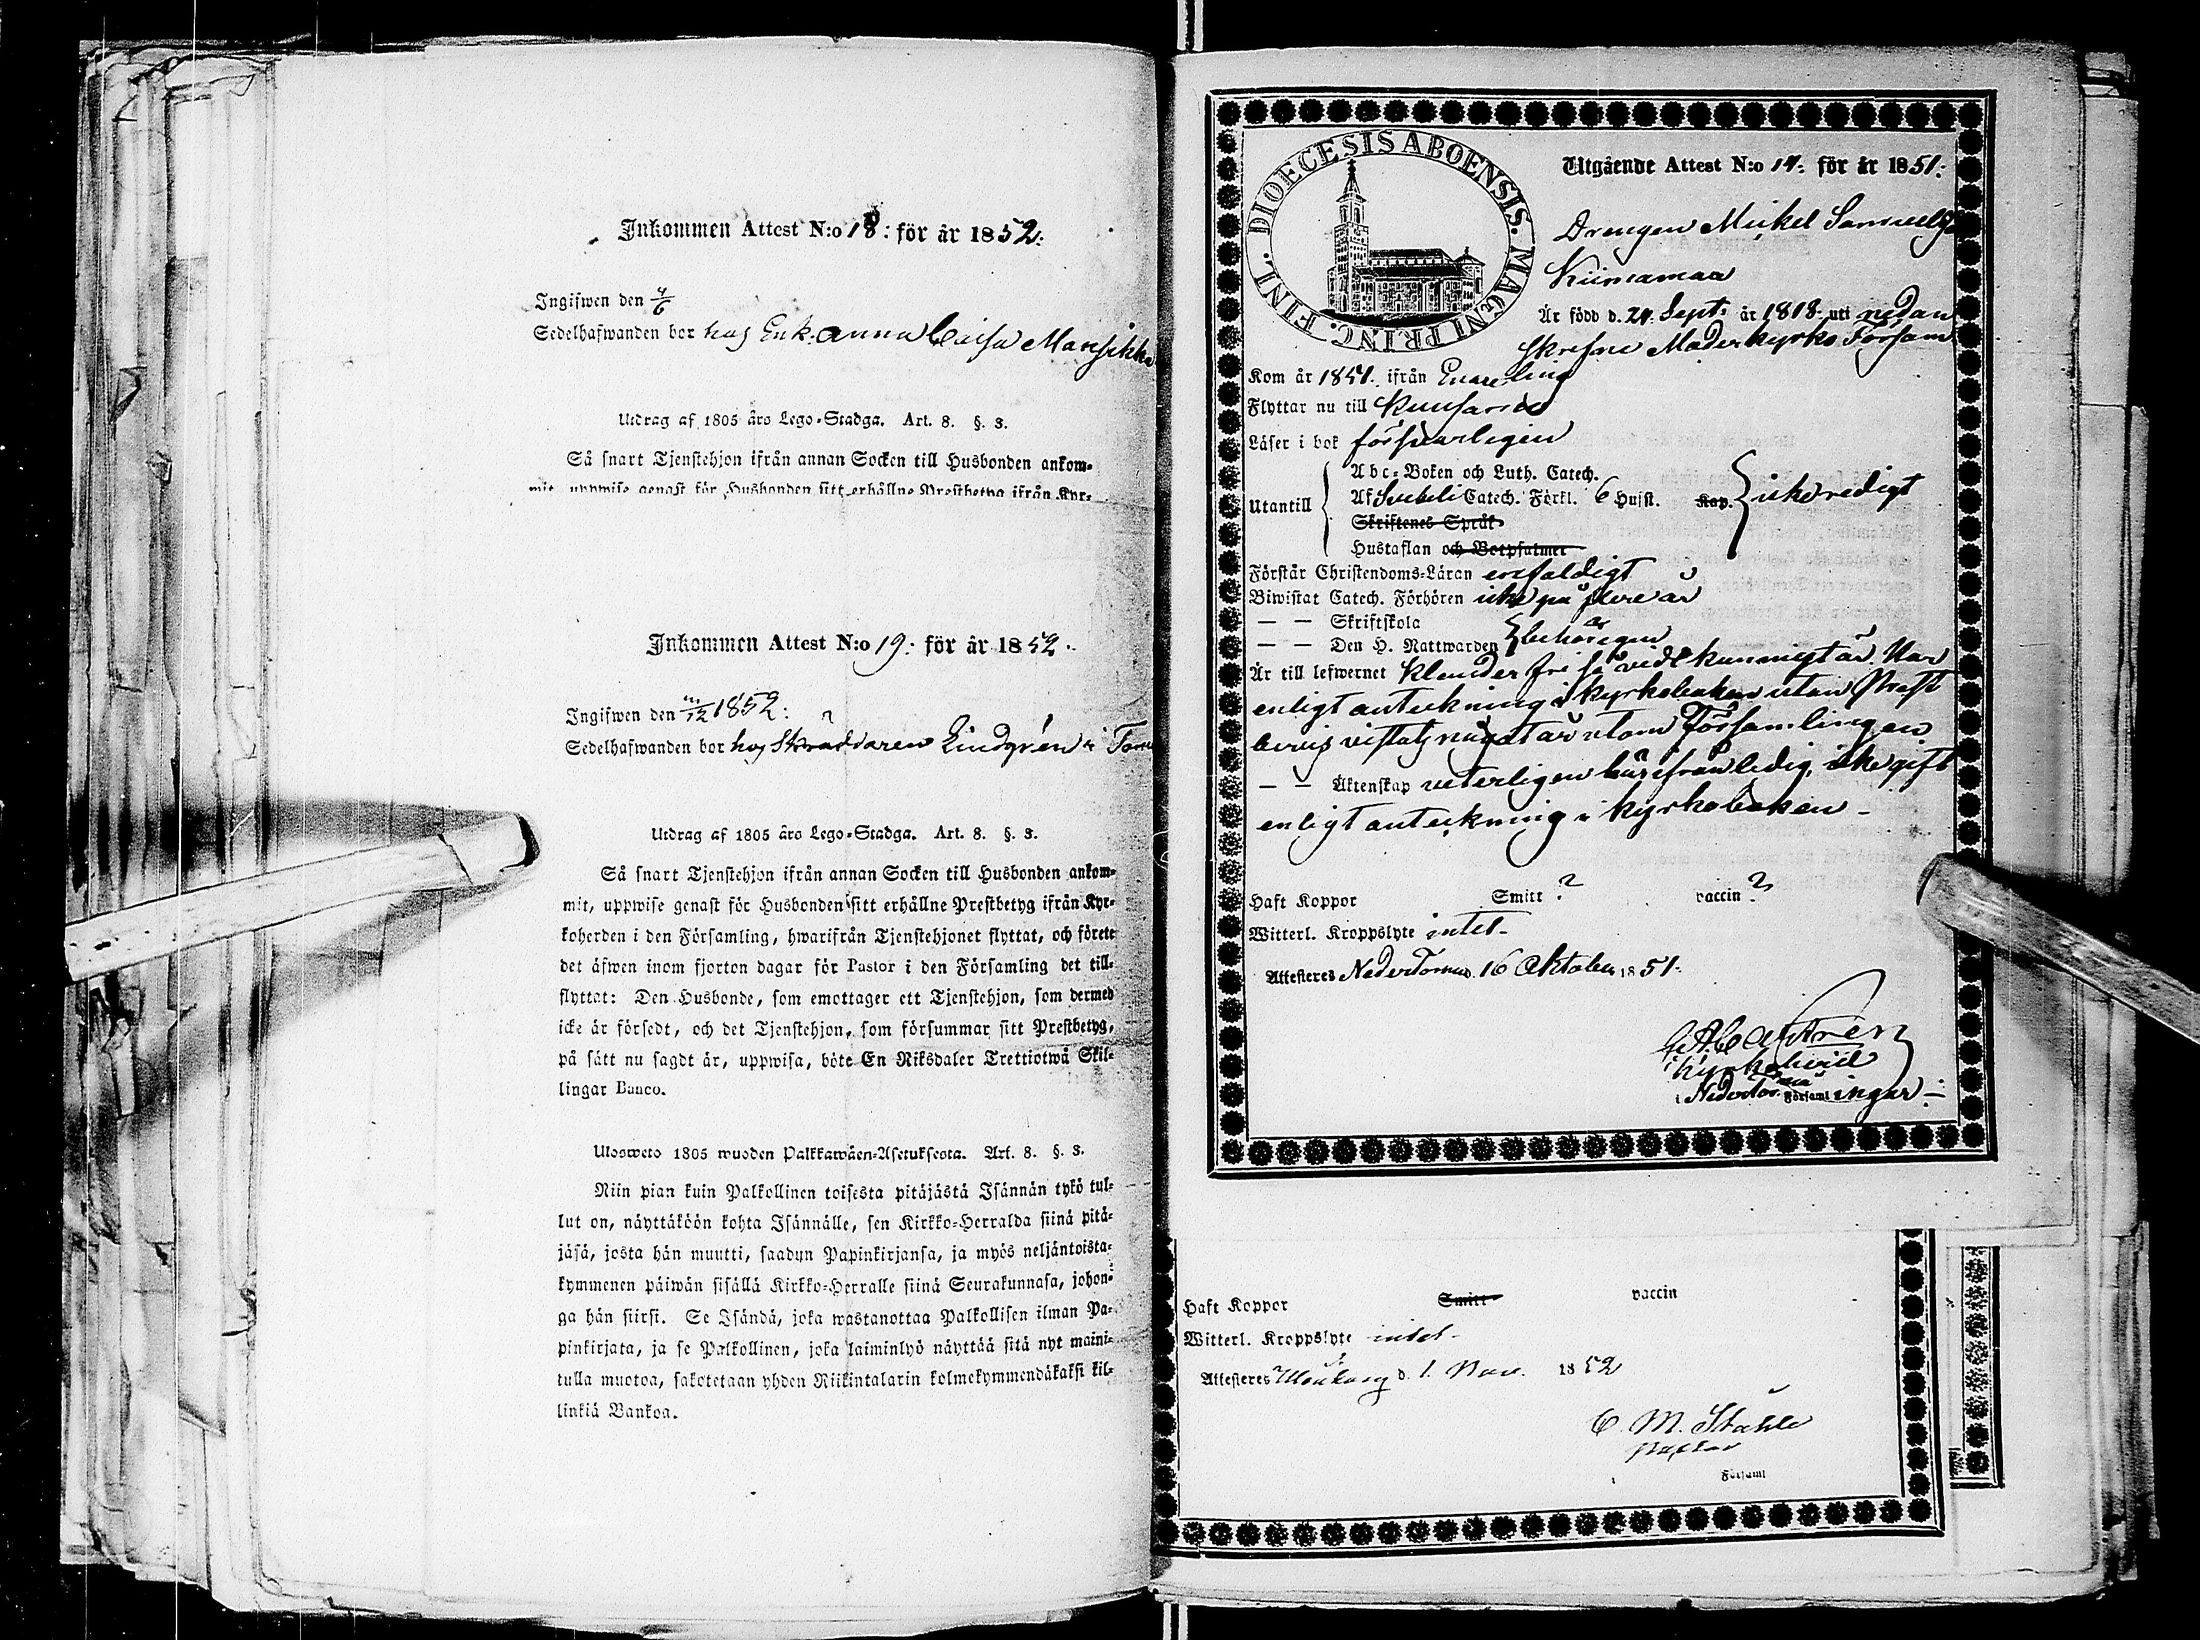 Inkommen Attest N:o 18: för år 1852:
Ingifwen den 4/6
Sedelhafwanden bor hos Enk. Anna Caisa Mansikka
Utdrag af 1805 års Lego-Stadga. Art. 8. §. 3.
Så snart Tjenstehjon ifrån annan Socken till Husbonden ankom-
mit, uppwise genast för Husbonden sitt erhållne Prestbetyg ifrån Kyr-
Inkommen Attest N:o 19: för år 1852.
Ingifwen den /12 1852:
Sedelhafwanden bor hos Lindgrén i
Utdrag af 1805 års Lego-Stadga. Art. 8. §. 3.
Så snart Tjenstehjon ifrån annan Socken till Husbonden ankom-
mit, uppwise genast för Husbonden sitt erhållne Prestbetyg ifrån Kyr-
koherden i den Församling, hwarifrån Tjenstehjonet flyttat, och förete
det äfwen inom fjorton dagar för Pastor i den Församling det till-
flyttat: Den Husbonde, som emottager ett Tjenstehjon, som dermed
icke är försedt, och det Tjenstehjon, som försummar sitt Prestbetyg,
på sätt nu sagdt är, uppwisa, böte En Riksdaler Trettiotwå Skil-
lingar Banco.
Ulosweto 1805 wuoden Palkkawäen-Asetuksesta. Art. 8. §. 3.
Niin pian kuin Palkollinen toisesta pitäjästä Isännän tykö tul-
lut on, näyttäköön kohta Isännälle, sen Kirkko-Herralda siinä pitä-
jäsä, josta hän muutti, saadun Papinkirjansa, ja myös neljäntoista-
kymmenen päiwän sisällä Kirkko-Herralle siinä Seurakunnasa, johon-
ga hän siirsi. Se Isändä, joka wastanottaa Palkollisen ilman Pa-
pinkirjata, ja se Palkollinen, joka laiminlyö näyttää sitä nyt maini-
tulla muotoa, sakotetaan yhden Riikintalarin kolmekymmendäkaksi kil-
linkiä Bankoa.
DIOECESIS ABOENSIS. MAGNI PRINC. FINL.
Utgående Attest N:o 14: för år 1851:
Drengen Mickel Samuelss
Kiimamaa
Är född d. 21. Sept. år 1818. uti nedan
skrefne Moderkyrko Försam
Kom år 1851. ifrån Enare ling
Flyttar nu till Kuusamo
Läser i bok försvarligen
Utantill
Abc-Boken och Luth. Catech.
Af Svebeli Catech. Förkl. 6 Hufst. Kap. icke redigt
Skriftenes Språk
Hustaflan och Botpsalmer
Förstår Christendoms-Läran enfaldigt
Biwistat Catech. Förhören icke på flere år
— — Skriftskola
— — Den H. Nattwarden behörigen
Är till lefwernet klanderfri så vidt kunnigt är. Har
enligt anteckning i kyrkoboken utan Prest
bevis vistats något år utom Församlingen
— — Äktenskap veterligen härifrån ledig, icke gift
enligt anteckning i kyrkoboken -
Haft Koppor Smitt ? vaccin ?
Witterl. Kroppslyte intet-
Attesteras Neder Torneå d. 16 Oktober 1851:
Castrén
Kyrkoherde
i Neder Torneå Församl ingar -
Haft Koppor Smitt vaccin
Witterl. Kroppslyte intet-
Attesteras Uleåborg d. 1. Nov. 1852
C. M. Stahle
Pastor
Församl